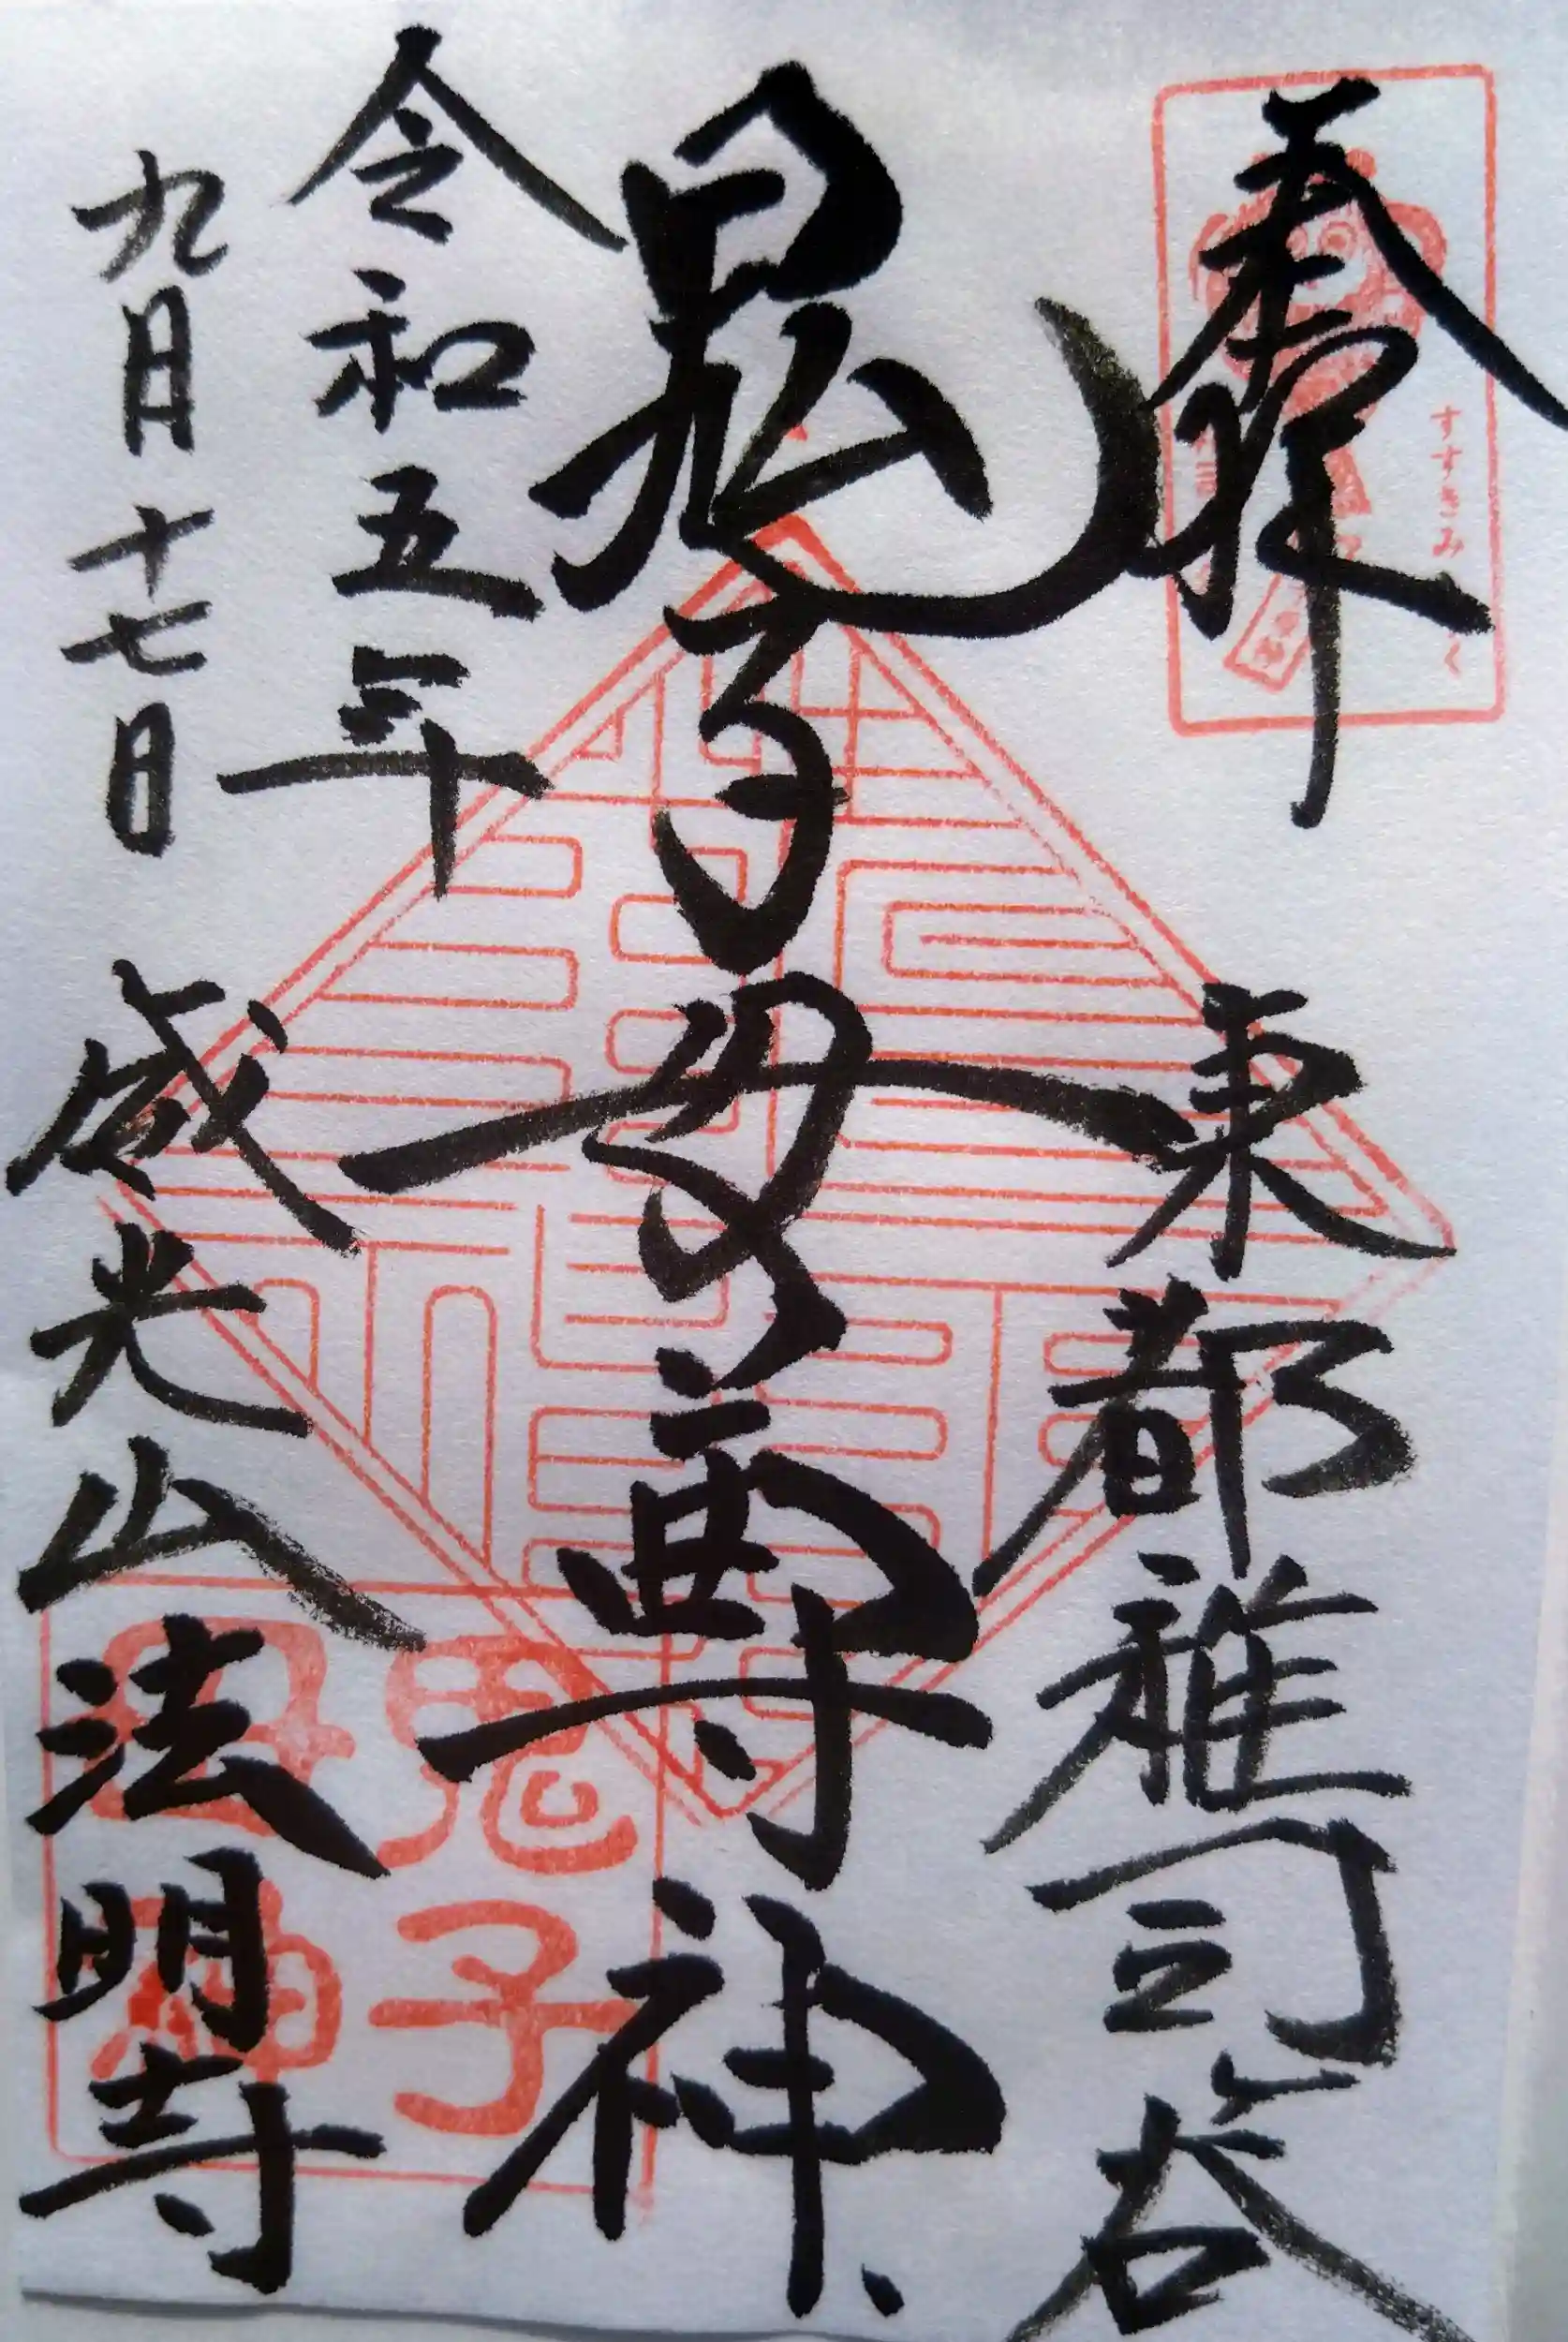 奉拝
東都雑司谷
鬼子母尊神
令和五年
九月十七日
威光山法明寺
すすきみ
鬼子
母神